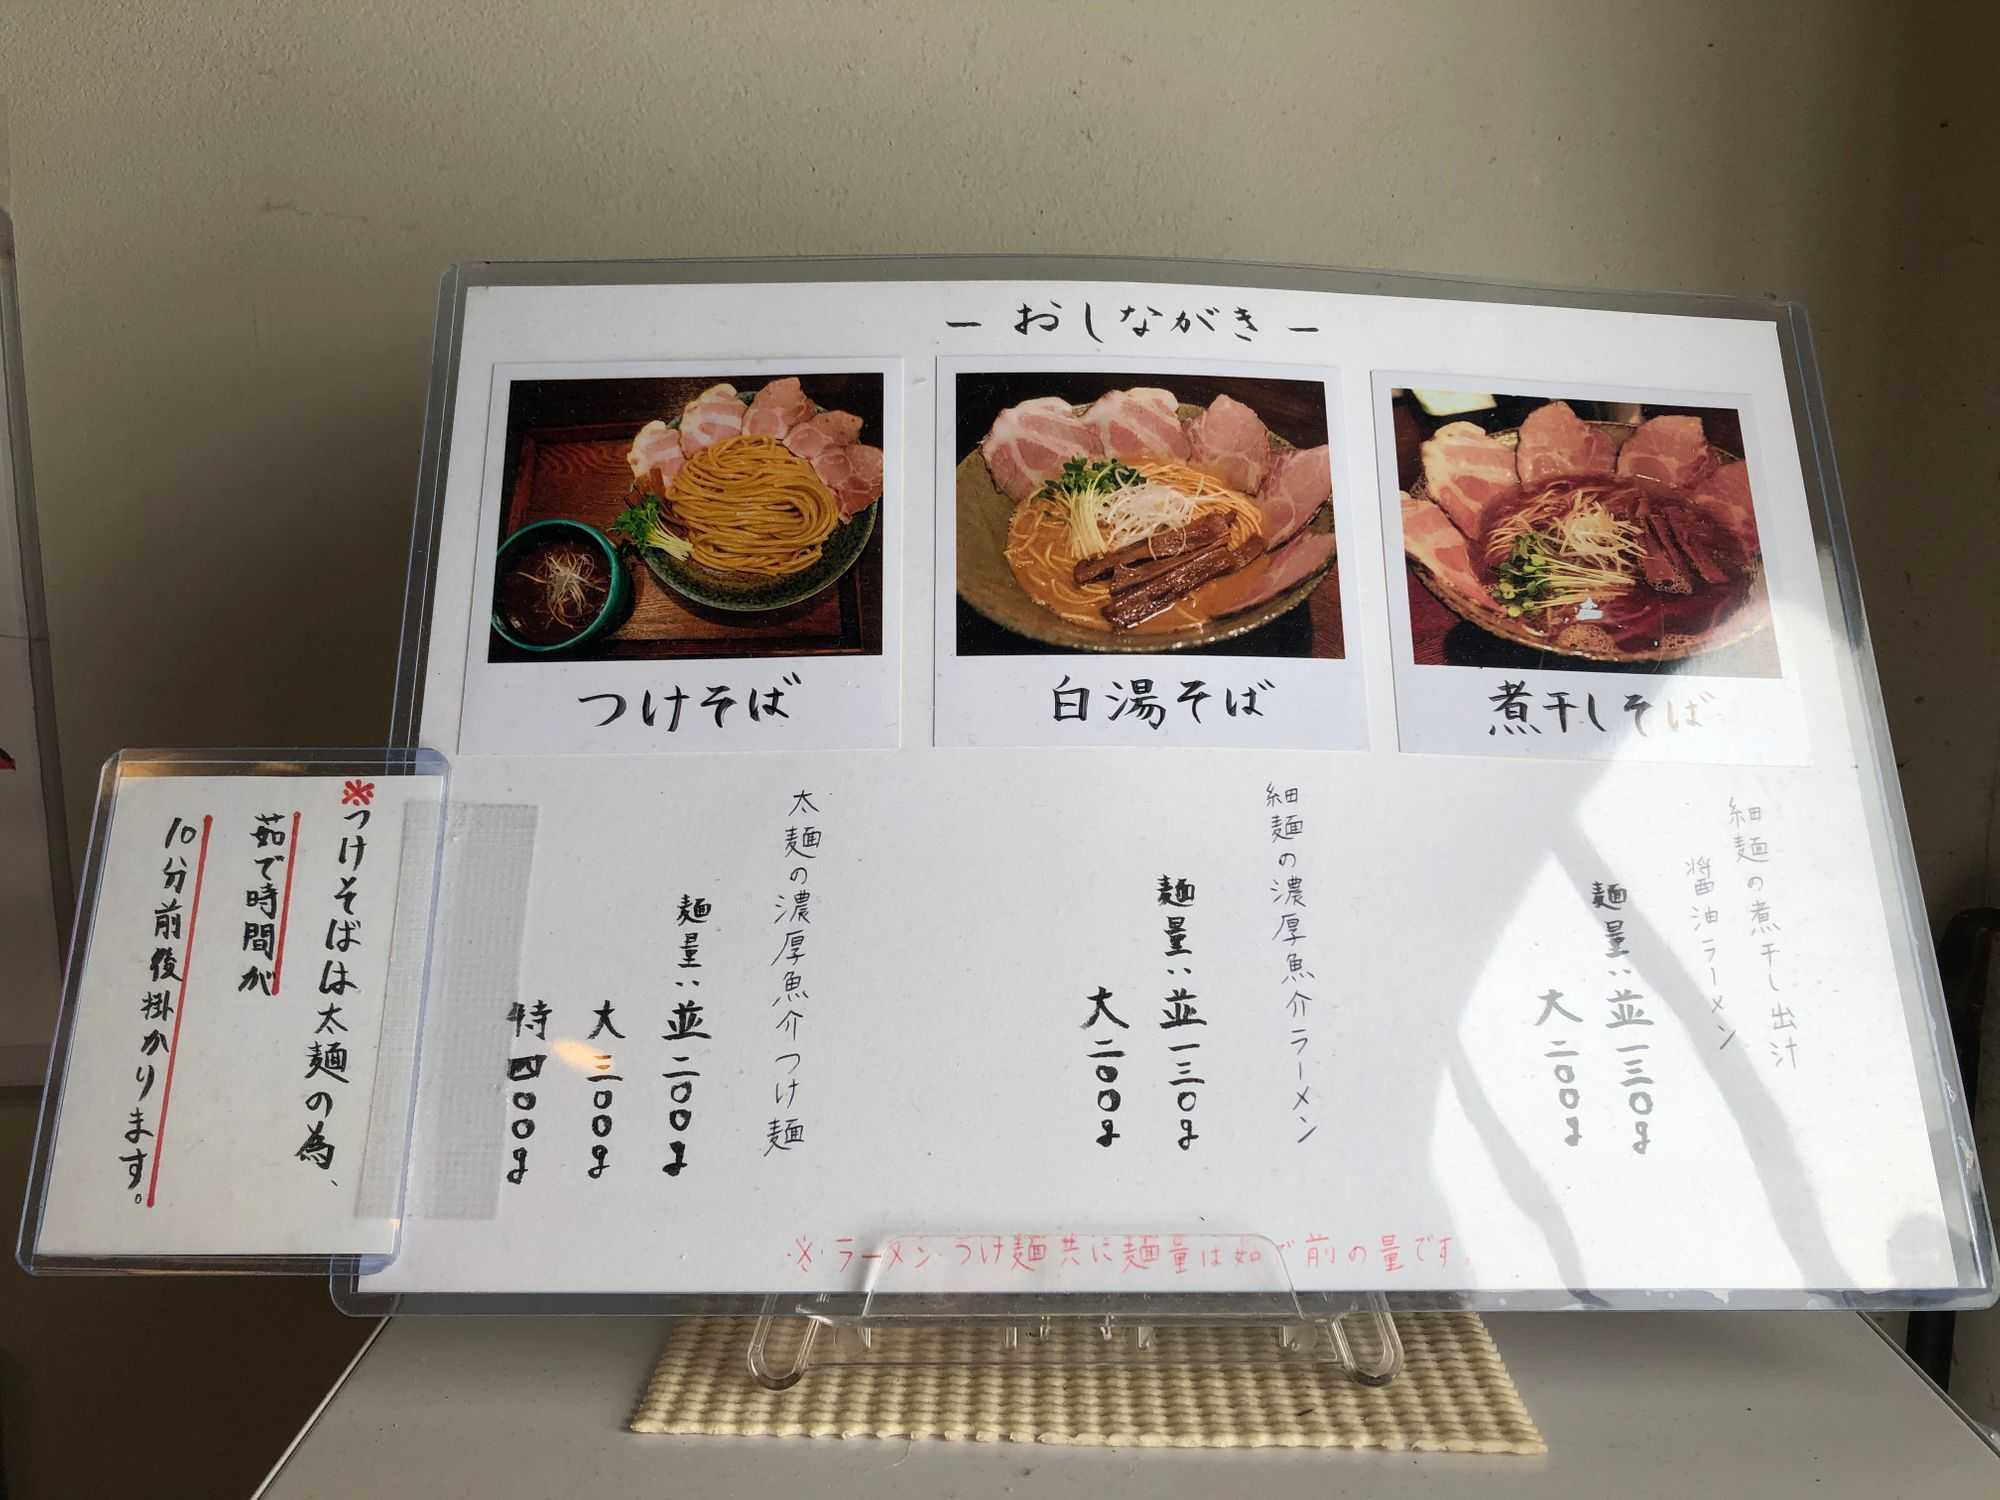 ー おしながき ー
つけそば
白湯そば
煮干しそば
細麺の煮干し出汁
醤油ラーメン
麺量:並一三〇g
大二〇〇g
細麺の濃厚魚介ラーメン
麺量:並一三〇g
大二〇〇g
太麺の濃厚魚介つけ麺
麺量:並二〇〇g
大三〇〇g
特四〇〇g
※ラーメン・つけ麺共に麺量は茹で前の量です。
※つけそばは太麺の為、
茹で時間が
10分前後掛かります。